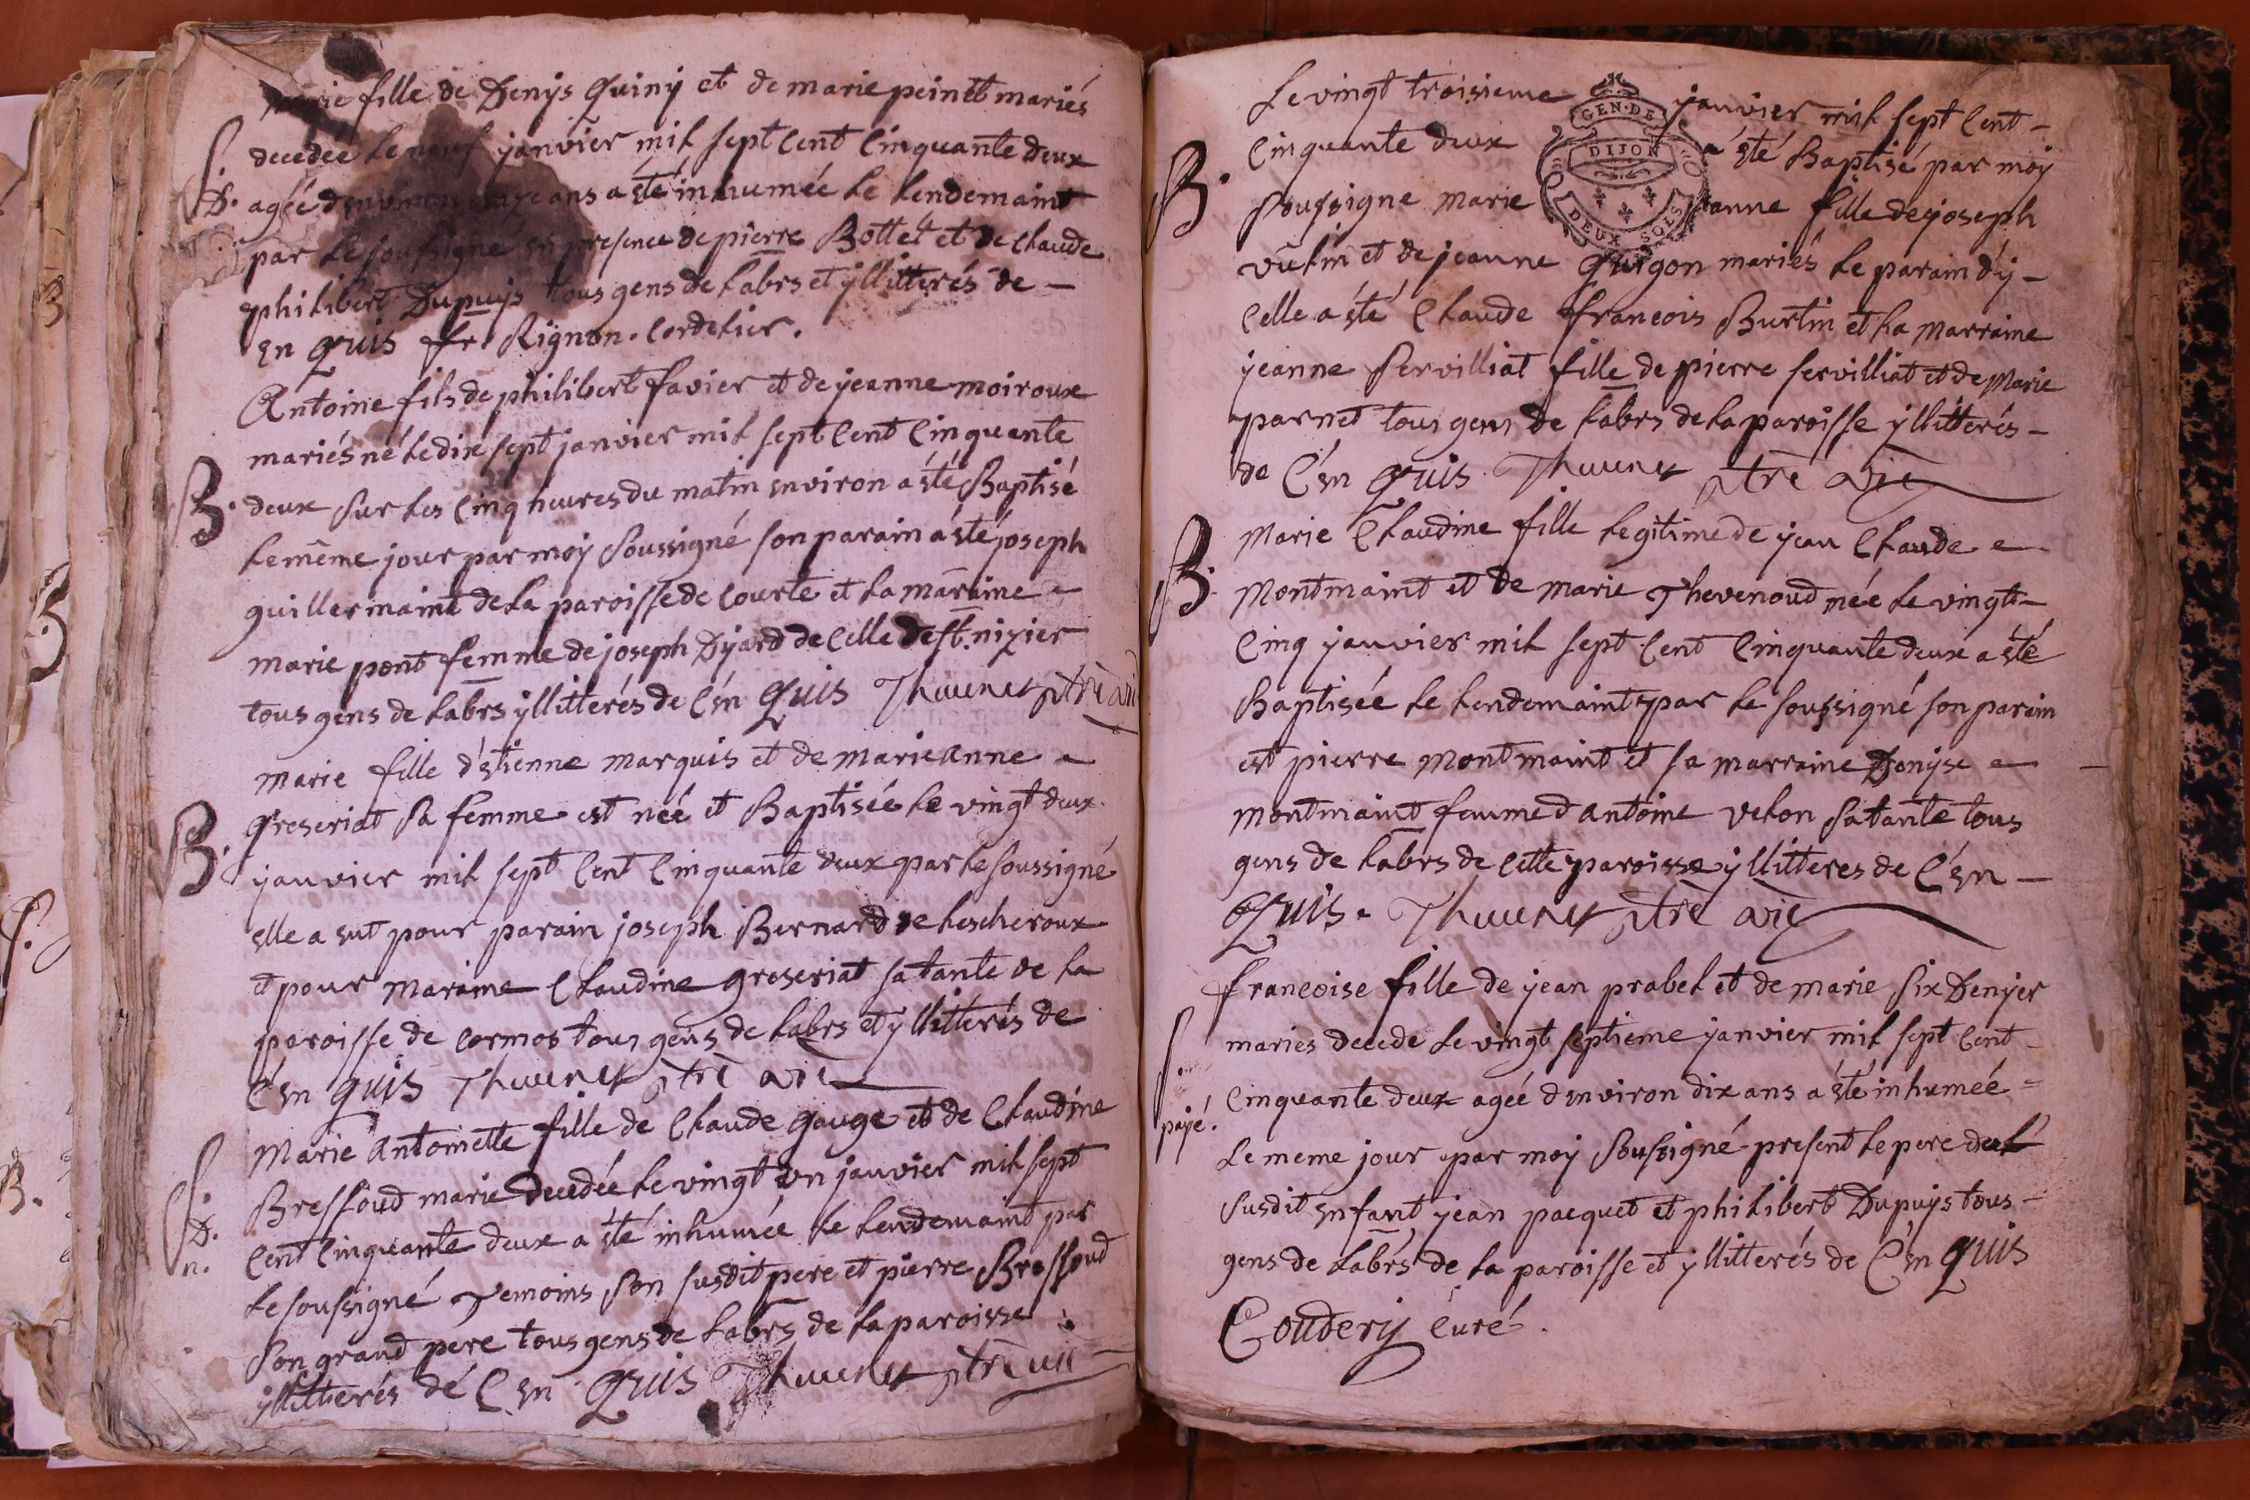 marie fille de Denys Quiny et de marie peintt mariés
S. decedée le neuf janvier mil sept cent cinquante deux
D. agée d'environ ans a été inhumée le lendemaint
par le soussigné en presence de pierre Bottet et de claude
philibert Dupuys tous gens de labrs et yllitterés de –
en quis fr. Rignon. cordelier.
Antoine fils de philibert favier et de jeanne moiroux
mariés né le dix sept janvier mil sept cent cinquante
B. deux sur les cinq heures du matin environ a été Baptisé
le même jour par moy soussigné son parain a été joseph
guillermaint de la paroisse de courte et la maraine
marie pont femme de joseph Dyard de celle de st. nizier
tous gens de labrs yllitterés de c'en quis Thuunet ptre vic
marie fille d'étienne marquis et de marie anne
B. greseriat sa femme est née et Baptisée le vingt deux
janvier mil sept cent cinquante deux par le soussigné
elle a eut pour parain joseph Bernard de lescheroux
et pour maraine claudine greseriat sa tante de la
paroisse de cormos tous gens de labrs et yllitterés de
c'en quis Thuunet ptre vic
Marie Antoinette fille de claude gauge et de claudine
Bressoud marie decedée le vingt un janvier mil sept
S. D. n. cent cinquante deux a été inhumée le lendemaint par
le soussigné Temoins son susdit pere et pierre Bressoud
son grand pere tous gens de labrs de la paroisse
yllitterés de c'en quis Thuunet ptre vic
Le vingt troisieme janvier mil sept cent –
B. cinquante deux a été Baptisé par moy
soussigne marie jeanne fille de joseph
vutin et de jeanne guigon mariés le parain d'y –
celle a été claude francois Burtin et la marraine
jeanne servilliat fille de pierre servilliat et de Marie
parnet tous gens de labrs de la paroisse yllitterés –
de c'en quis Thuunet ptre vic
B. Marie claudine fille legitime de jean claude
Montmaint et de marie Thevenoud née le vingt –
cinq janvier mil sept cent cinquante deux a été
Baptisée le lendemaint par le soussigné son parain
est pierre montmaint et sa marraine Denyse
montmaint femme d'antoine velon sa tante tous
gens de labrs de cette paroisse yllitteres de c'en –
quis. Thuunet ptre vic
francoise fille de jean prabel et de marie six Denyer
S. maries decede le vingt septieme janvier mil sept cent –
payé. cinquante deux agée d'environ dix ans a été inhumée
le meme jour par moy soussigné present le pere du
susdit enfant jean pacquet et philibert Dupuys tous –
gens de labrs de la paroisse et yllitterés de c'en quis
Coudery curé.
GEN. DE
DIJON
DEUX SOLS